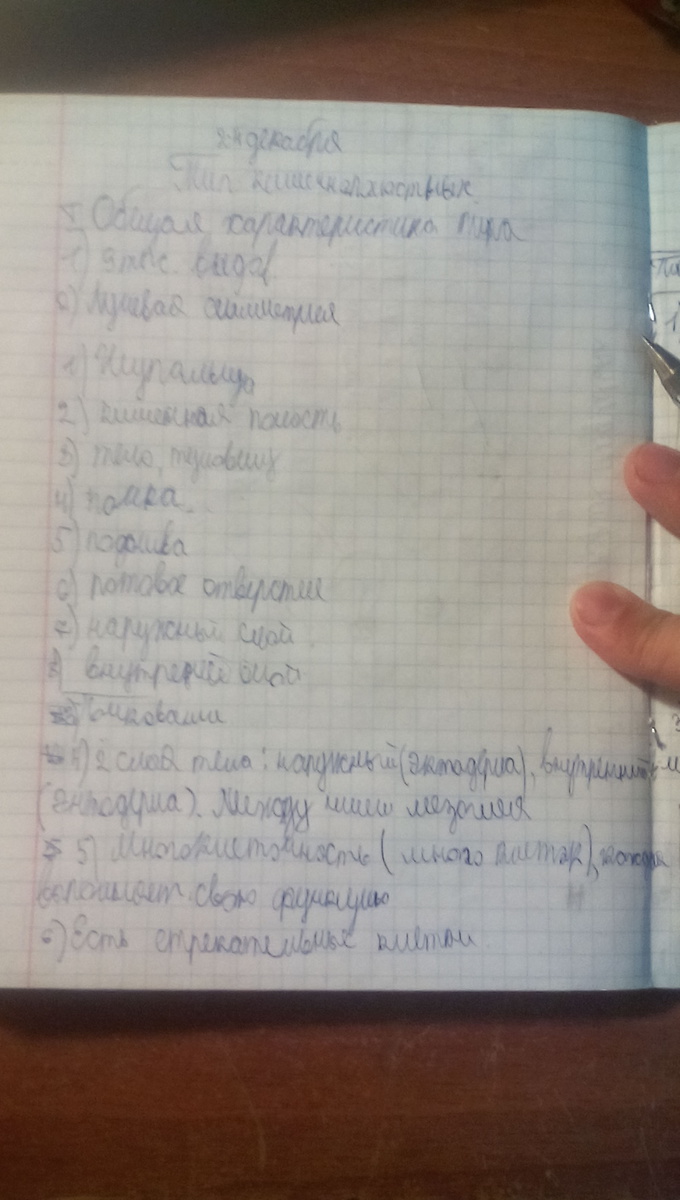 24 декабря
Тип кишечнополостных
I Общая характеристика типа
1) 9 тыс. видов
2) Лучевая симметрия
1) Щупальца
2) кишечная полость
3) тело, туловищ
4) почка
5) подошва
6) ротовое отверстие
7) наружный слой
8) внутренний слой
4) 2 слоя тела: наружный (эктодерма), внутренний
(энтодерма). Между ними мезоглея
5) Многоклеточность (много клеток), каждая
выполняет свою функцию
6) Есть стрекательные клетки.